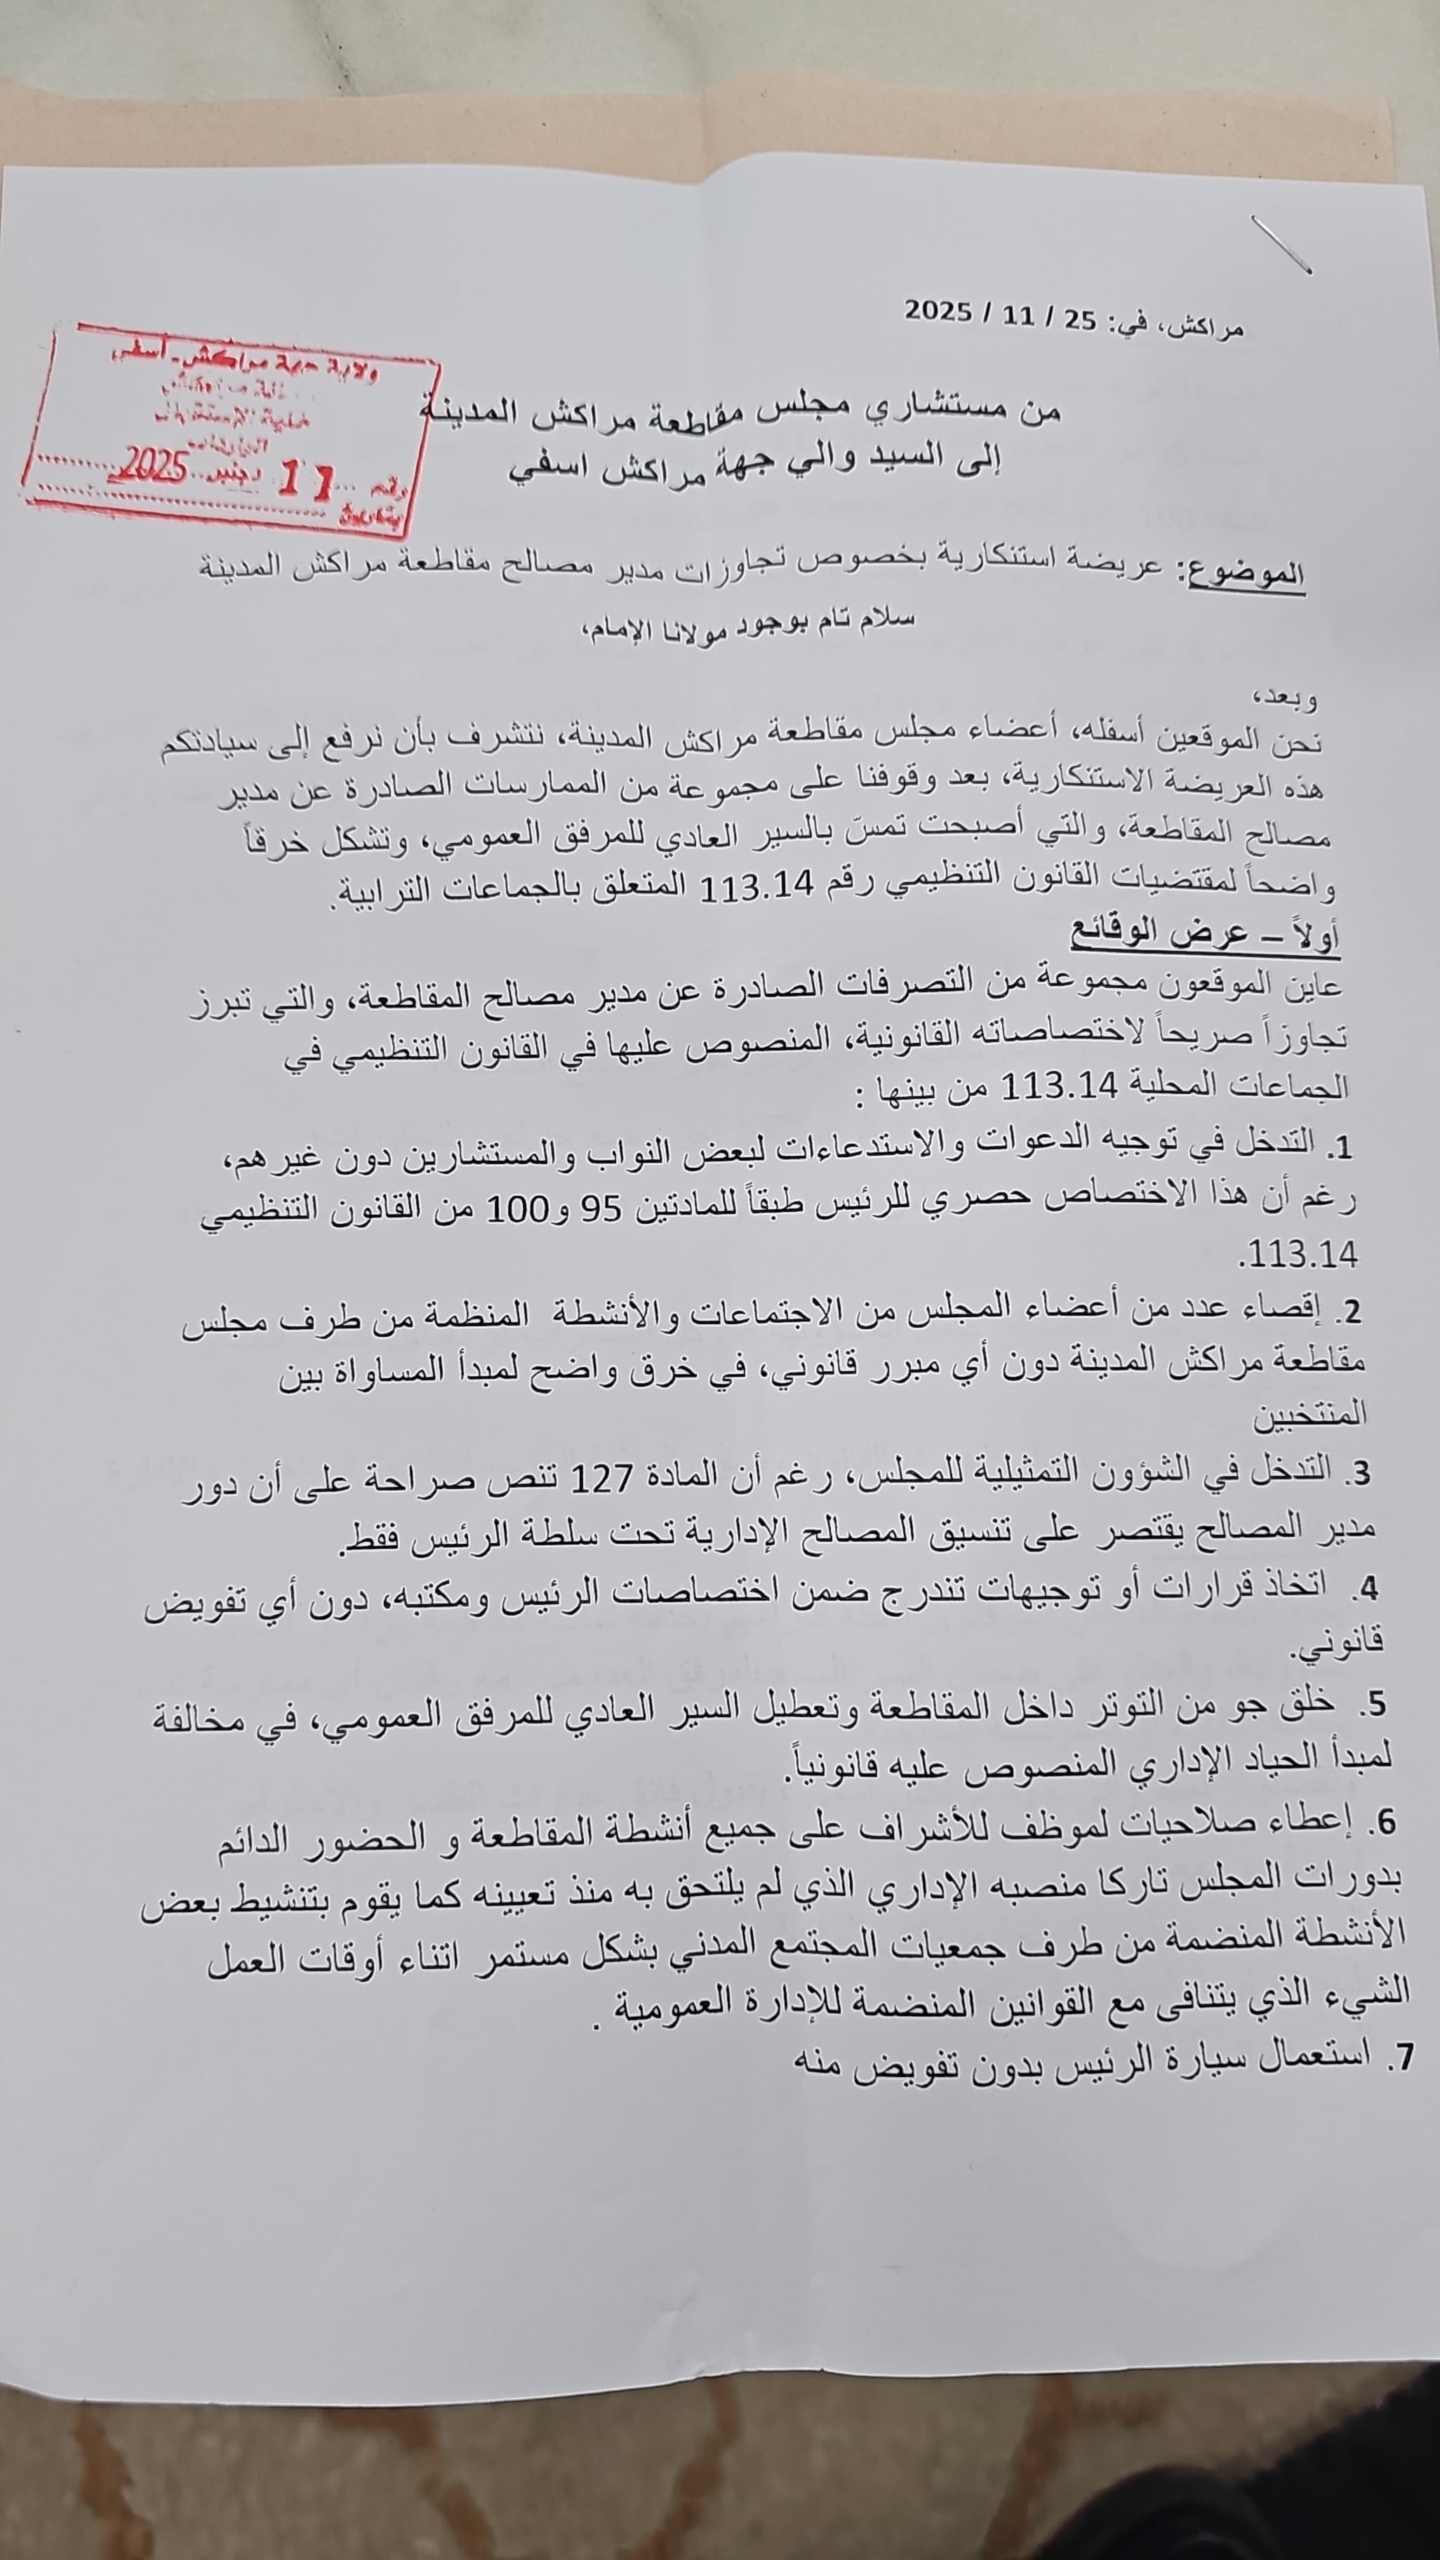 مراكش، في: 25 / 11 / 2025
ولاية جهة مراكش-أسفي
الواردات
رقم ... 11 دجنبر 2025
بتاريخ
من مستشاري مجلس مقاطعة مراكش المدينة
إلى السيد والي جهة مراكش اسفي
الموضوع: عريضة استنكارية بخصوص تجاوزات مدير مصالح مقاطعة مراكش المدينة
سلام تام بوجود مولانا الإمام،
وبعد،
نحن الموقعين أسفله، أعضاء مجلس مقاطعة مراكش المدينة، نتشرف بأن نرفع إلى سيادتكم
هذه العريضة الاستنكارية، بعد وقوفنا على مجموعة من الممارسات الصادرة عن مدير
مصالح المقاطعة، والتي أصبحت تمسّ بالسير العادي للمرفق العمومي، وتشكل خرقاً
واضحاً لمقتضيات القانون التنظيمي رقم 113.14 المتعلق بالجماعات الترابية.
أولاً – عرض الوقائع
عاين الموقعون مجموعة من التصرفات الصادرة عن مدير مصالح المقاطعة، والتي تبرز
تجاوزاً صريحاً لاختصاصاته القانونية، المنصوص عليها في القانون التنظيمي في
الجماعات المحلية 113.14 من بينها :
1. التدخل في توجيه الدعوات والاستدعاءات لبعض النواب والمستشارين دون غيرهم،
رغم أن هذا الاختصاص حصري للرئيس طبقاً للمادتين 95 و100 من القانون التنظيمي
113.14.
2. إقصاء عدد من أعضاء المجلس من الاجتماعات والأنشطة المنظمة من طرف مجلس
مقاطعة مراكش المدينة دون أي مبرر قانوني، في خرق واضح لمبدأ المساواة بين
المنتخبين
3. التدخل في الشؤون التمثيلية للمجلس، رغم أن المادة 127 تنص صراحة على أن دور
مدير المصالح يقتصر على تنسيق المصالح الإدارية تحت سلطة الرئيس فقط.
4. اتخاذ قرارات أو توجيهات تندرج ضمن اختصاصات الرئيس ومكتبه، دون أي تفويض
قانوني.
5. خلق جو من التوتر داخل المقاطعة وتعطيل السير العادي للمرفق العمومي، في مخالفة
لمبدأ الحياد الإداري المنصوص عليه قانونياً.
6. إعطاء صلاحيات لموظف للأشراف على جميع أنشطة المقاطعة و الحضور الدائم
بدورات المجلس تاركا منصبه الإداري الذي لم يلتحق به منذ تعيينه كما يقوم بتنشيط بعض
الأنشطة المنضمة من طرف جمعيات المجتمع المدني بشكل مستمر اتناء أوقات العمل
الشيء الذي يتنافى مع القوانين المنضمة للإدارة العمومية .
7. استعمال سيارة الرئيس بدون تفويض منه